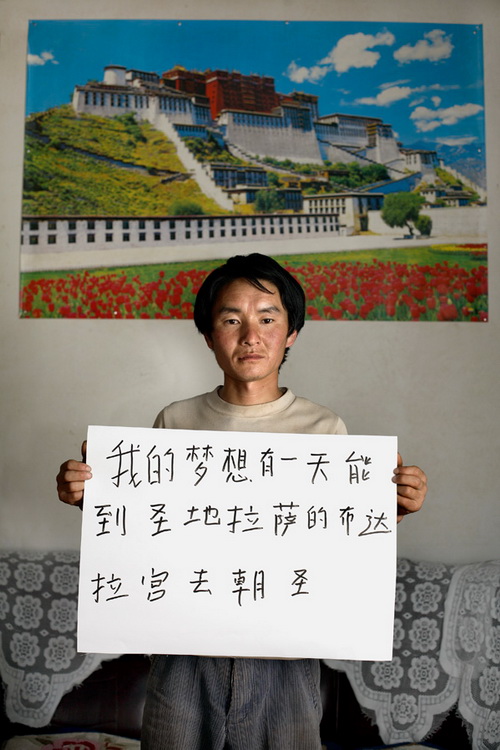 我的梦想有一天能
到圣地拉萨的布达
拉宫去朝圣